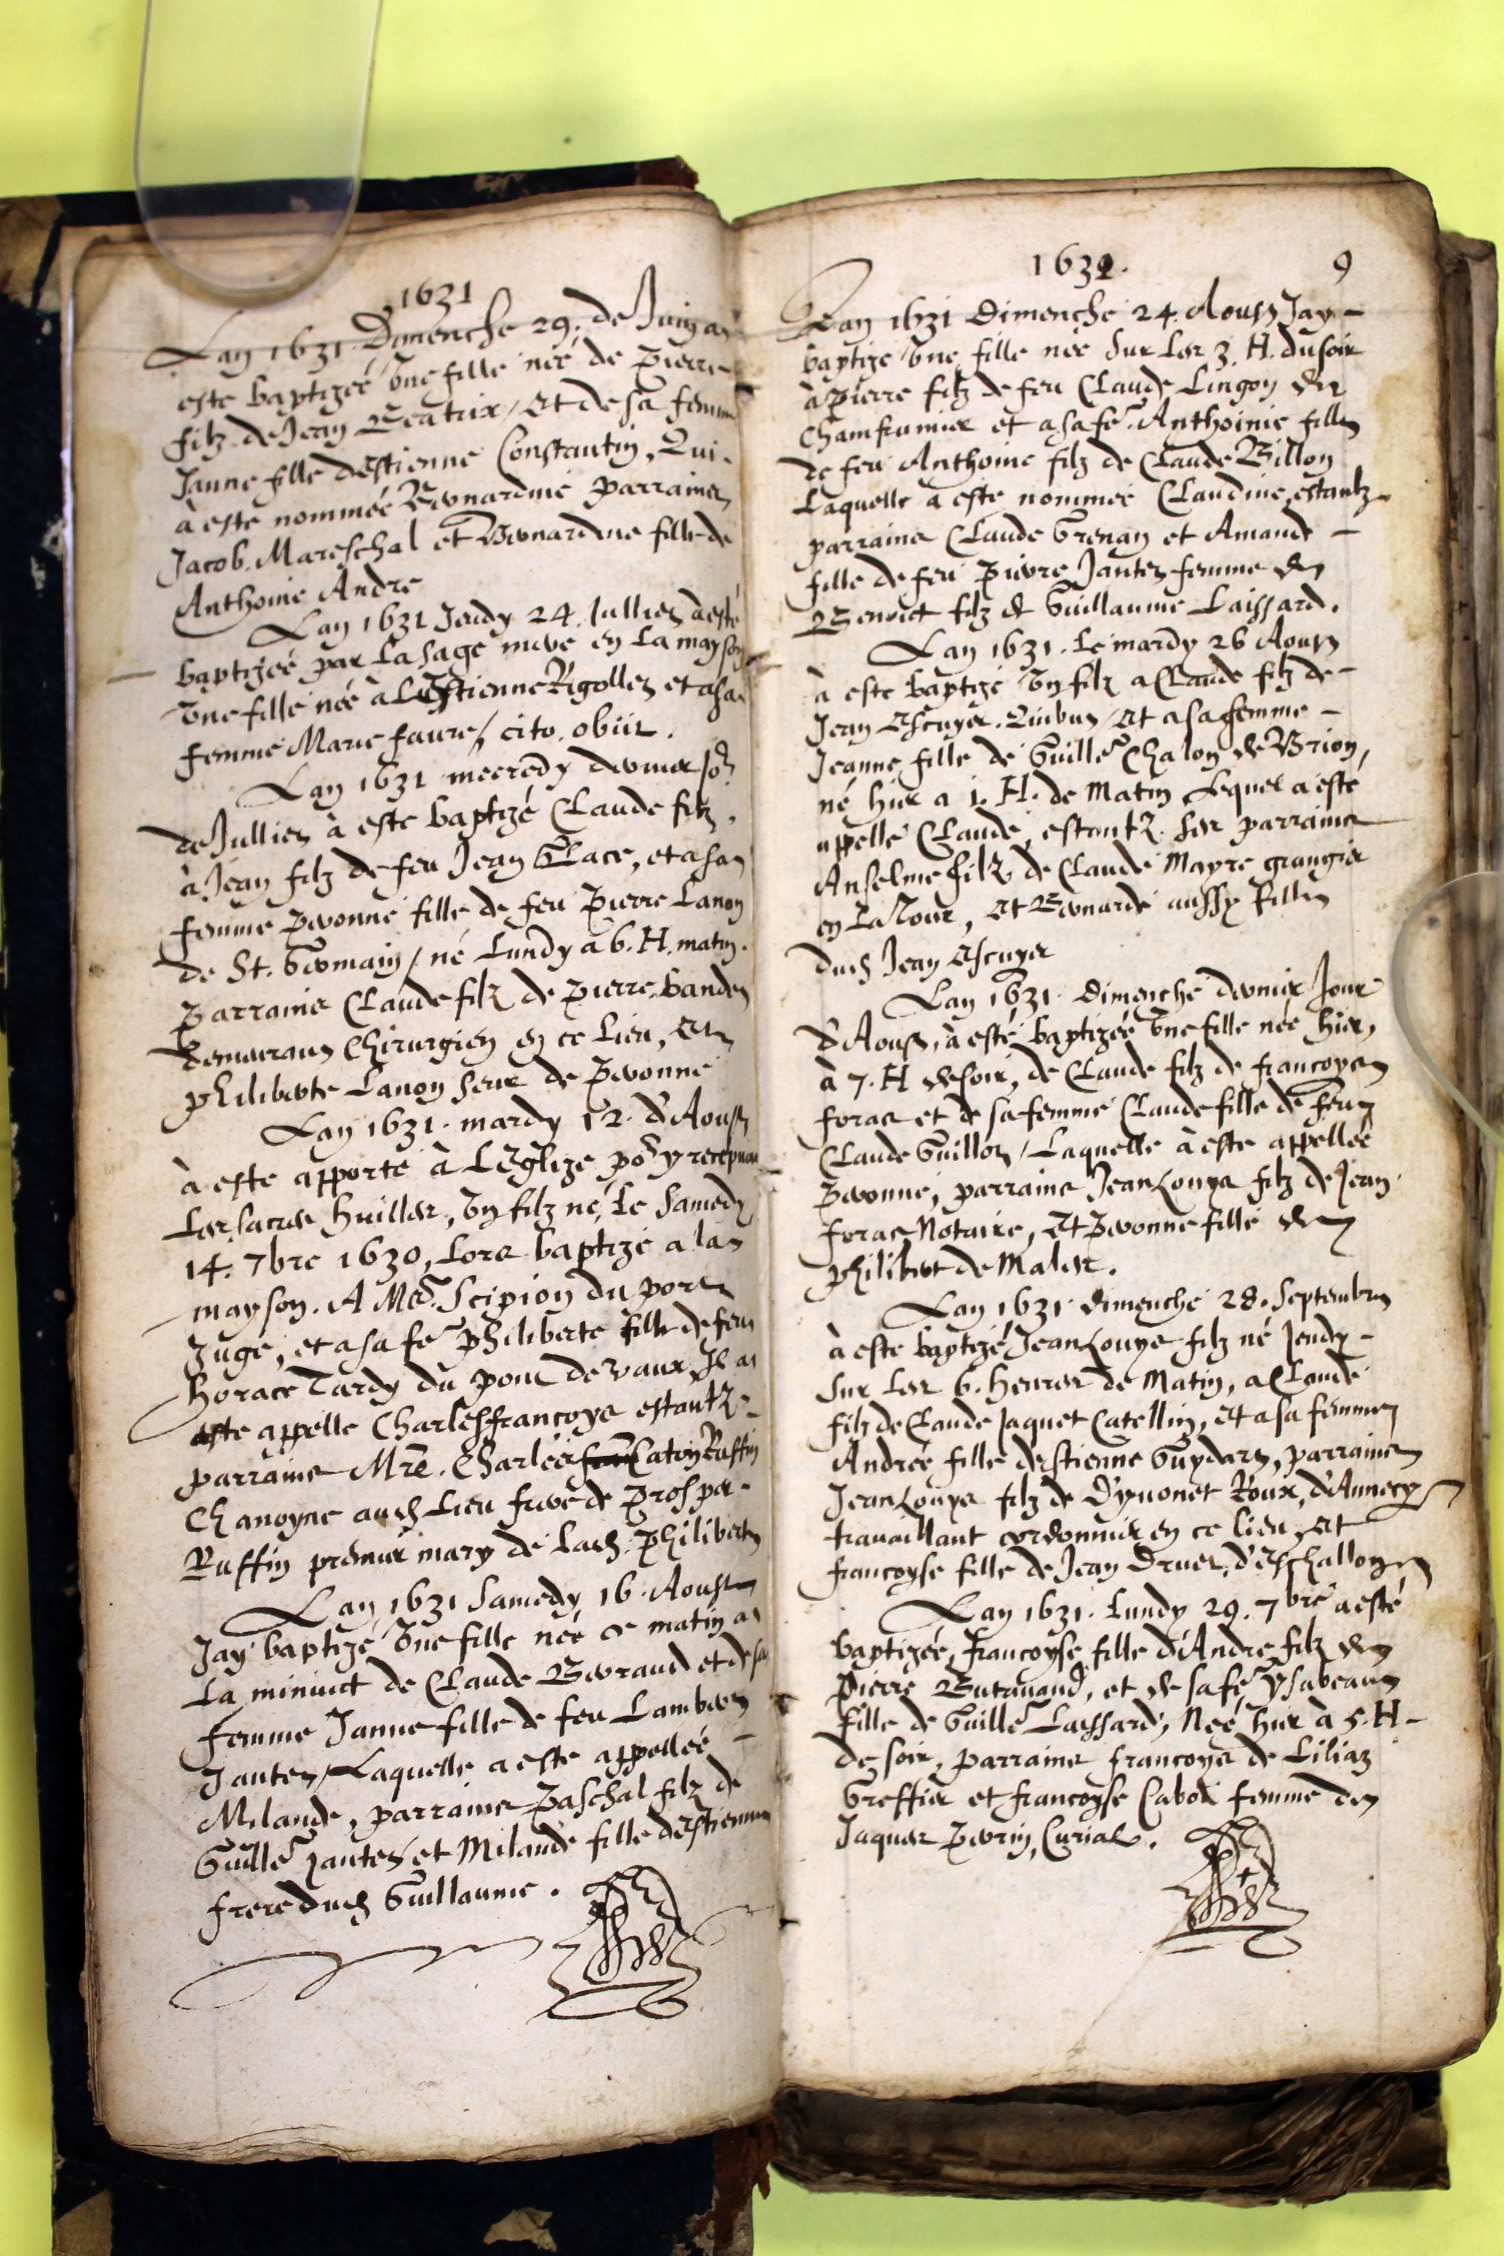 1631
Lan 1631 Dimenche 29. de Juing a
este baptizée une fille née de Pierre
filz de Jean Beatrix, et de sa femme
Janne fille d'estienne Constantin, Qui
à este nommée Bernardine parrains
Jacob Mareschal et Bernardine fille de
Anthoine Andre
Lan 1631 Jeudy 24. Jullies à esté
baptizée par la sage mere en la mayson
une fille née a Estienne Rigolles et a sa
femme Marie faure, cito. obiit.
Lan 1631 mecredy dernier jor
de Jullies à este baptizé Claude filz
à Jean filz de feu Jean Glace, et a sa
femme Pernonne fille de feu Pierre Lanon
de St. Germain, né Lundy a 6. H. matin.
Parrains Claude filz de Pierre
demeurant Chirurgien en ce Lieu, et
Philiberte Lanon seur de Pernonne
Lan 1631. mardy 12. d'Aoust
à este apporté à LEglize por y recepuoir
les sacres huilles, un filz né, le samedy
14. 7bre 1630, Lors baptizé a la
mayson. A Mr. Scipion du port
Juge, et a sa fe Philiberte fille de feu
horace Tardy du pont de vaux Il a
este appelle Charlesfrancoys estantz
parrains Mre. Charles Caton Ruffin
Chanoyne aud Lieu frere de Prosper
Ruffin premier mary de lad. Philiberte
Lan 1631 Samedy 16. Aoust
Jay baptizé une fille née ce matin a
la minuict de Claude Beraud et de sa
femme Janne fille de feu Lambert
Jantes, Laquelle a este appellée
Milande, parrains Paschal filz de
Guille Jantes et Milande fille destienne
frere dud Guillaume.
1631. 9
Lan 1631 Dimenche 24. Aoust Jay
baptize une fille née sur les 3. H. du soir
à Pierre filz de feu Claude Lingon de
Chamfrumier et a sa fe. Anthoinie fille
de feu Anthoine filz de Claude Billon
Laquelle a este nommée Claudine, estantz
parrains Claude Grenan et Amande
fille de feu Pierre Jantes femme de
Benoict filz de Guillaume Laissard.
Lan 1631. Le mardy 26 Aoust
à este baptizé un filz a Claude filz de
Jean Escuyer. Quibus, et a sa femme
Jeanne fille de Guille Chalon de Brion,
né hier a 1. H. de Matin Lequel a este
appellé Claude, estantz les parrains
Anselme filz de Claude Mayre grangier
en La Tour, et Bernarde aussy fille
dud Jean Escuyer
Lan 1631. Dimenche dernier Jour
d'Aoust, à esté baptizée une fille née hier,
à 7. H de soir, de Claude filz de francoys
foras et de sa femme Claude fille de feu
Claude Guillot, Laquelle à este appellée
Pernonne, parrains Jean Louys filz de Jean
foras Notaire, et Pernonne fille de
Philibert de Males.
Lan 1631. dimenche 28. Septembre
à este baptizé Jean Louys filz né Jeudy
sur les 6. heures de Matin, a Claude
filz de Claude Jaquet Catellin, et a sa femme
Andrée fille destienne Guydard, parrains
Jean Louys filz de Dyuonet Roux, d'Annecy
trauaillant cordonnier en ce lieu, et
francoyse fille de Jean Druet, d'Eschallon
Lan 1631. Lundy 29. 7bre a esté
baptizée, francoyse, fille d'Andre filz de
Pierre Butauand, et de sa fe, ysabeau
fille de Guille Laissard, Née hier à 5. H
de soir, parrains francoys de Liliaz
Greffier et francoyse Cabor femme de
Jaques Perrin, Curial.